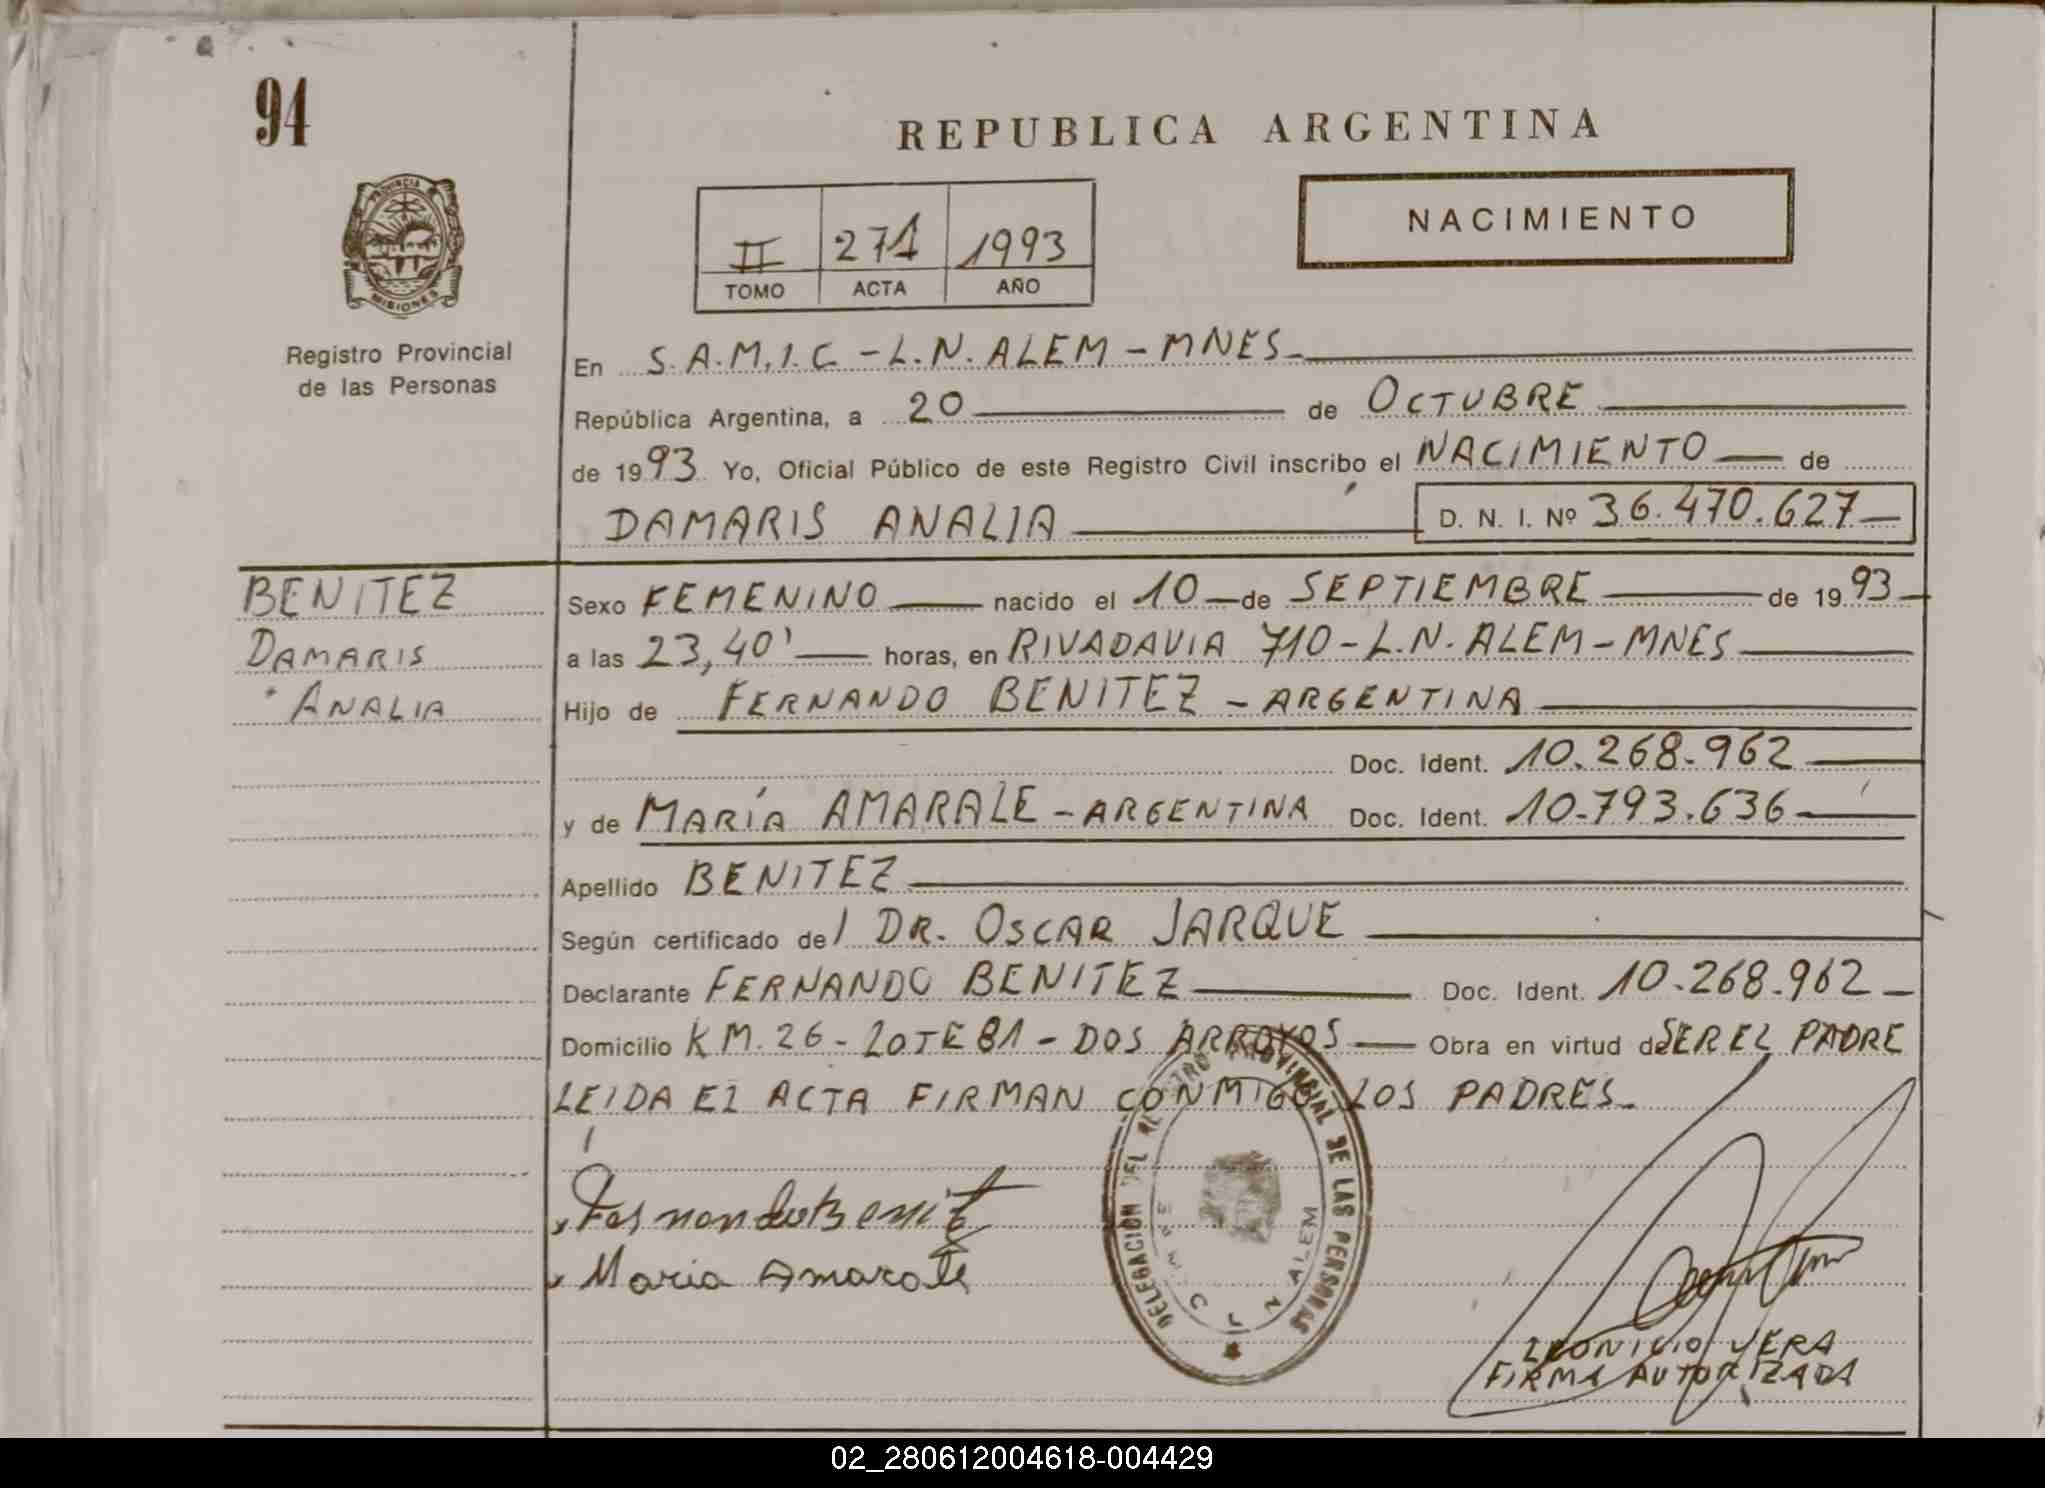 94
REPUBLICA ARGENTINA
NACIMIENTO
II 271 1993
TOMO ACTA AÑO
PROVINCIA
MISIONES
Registro Provincial
de las Personas
En S.A.M.I.C - L.N. ALEM - MNES.
República Argentina, a 20 de OCTUBRE
de 1993 Yo, Oficial Público de este Registro Civil inscribo el NACIMIENTO de
DAMARIS ANALIA D. N. I. Nº 36.470.627
BENITEZ
DAMARIS
ANALIA
Sexo FEMENINO nacido el 10 de SEPTIEMBRE de 1993
a las 23,40' horas, en RIVADAVIA 710 - L.N. ALEM - MNES
Hijo de FERNANDO BENITEZ - ARGENTINA
Doc. Ident. 10.268.962
y de MARÍA AMARALE - ARGENTINA Doc. Ident. 10.793.636
Apellido BENITEZ
Según certificado del DR. OSCAR JARQUE
Declarante FERNANDO BENITEZ Doc. Ident. 10.268.962
Domicilio KM. 26 - LOTE 81 - DOS ARROYOS Obra en virtud de SER EL PADRE
LEIDA EL ACTA FIRMAN CONMIGO LOS PADRES.
Maria Amarale
DELEGACION DEL REGISTRO PROVINCIAL DE LAS PERSONAS
L N ALEM
LEONICIO VERA
FIRMA AUTORIZADA
02_280612004618-004429